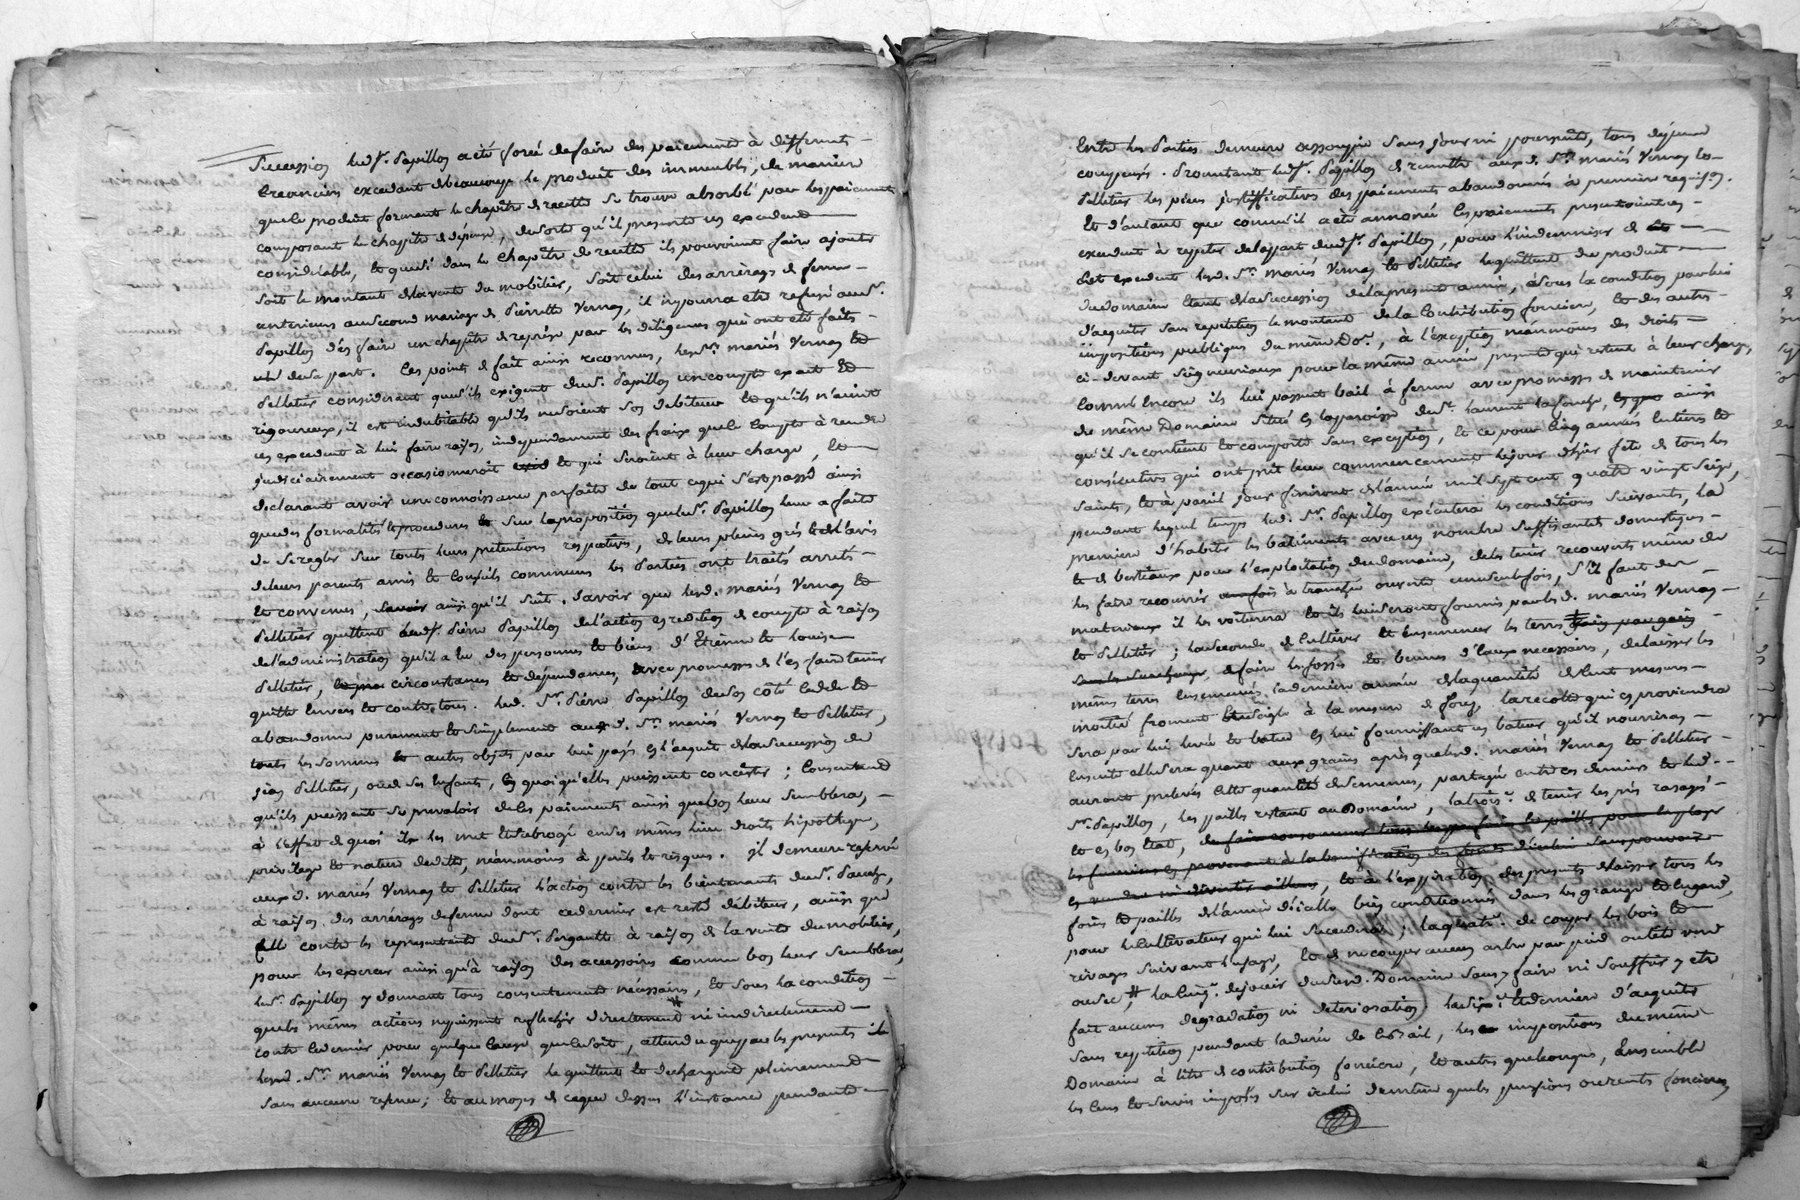 Succession led. sr. Papillon a été forcé de faire des paiements à différents
Creanciers excedant de beaucoup le produit des immeubles, de maniere
que le produit formant le chapitre de recette se trouve absorbé par les paiements
composant le chapitre de dépense, de sorte qu'il presente un excedent
considerable, et que si dans le chapitre de recette ils pouvoient faire ajouter
soit le montant de la vente du mobilier, soit celui des arrérages de ferme
anterieurs au second mariage de Pierrette Vernay, il ne pourra etre refusé aud. sr.
Papillon d'en faire un chapitre de reprise par les diligences qui ont été faites
de sa part. Ces points de fait ainsi reconnus, lesd. srs. mariés Vernay et
Pelletier considerant que s'ils exigent dud. sr. Papillon un compte exact et
rigoureux, il est indubitable qu'ils ne soient ses debiteurs et qu'ils n'aient
cet excedent à lui faire raison, independamment des frais que le compte à rendre
judiciairement occasionneroit et qui seroient à leur charge, et
declarant avoir une connoissance parfaite de tout ce qui s'est passé ainsi
que des formalités et procedures sur la proposition que led. sr. Papillon leur a faite
de se regler sur toutes leurs pretentions respectives, de leurs pleins grés et de l'avis
de leurs parents amis et conseils communs les Parties ont traité arreté
et convenu, ainsi qu'il suit. Savoir que lesd. mariés Vernay et
Pelletier quittent led. sr. Pierre Papillon de l'action en reddition de compte à raison
de l'administration qu'il a eu des personnes et biens d'Etienne et Louise
Pelletier, circonstances et dépendances, avec promesses de l'en faire tenir
quitte envers et contre tous. led. sr. Pierre Papillon de son côté cede et
abandonne purement et simplement auxd. srs. mariés Vernay et Pelletier,
toutes les sommes et autres objets par lui payés en l'acquit de la succession de
Jean Pelletier, ou de ses enfants, en quoi qu'elles puissent consister; Consentant
qu'ils puissent se prevaloir de ces paiements ainsi que bon leur semblera,
à l'effet de quoi il les met et subroge en ses mêmes lieu droits hipotheque,
privilege et nature de dette, néanmoins à périls et risques. Il demeure reservé
auxd. mariés Vernay et Pelletier l'action contre les bientenants du sr.
à raison des arrérages de ferme dont ce dernier est resté débiteur, ainsi que
contre les representants du sr. à raison de la vente du mobilier,
pour les exercer ainsi qu'à raison des accessoires comme bon leur semblera,
led. sr. Papillon y donnant tous consentements nécessaires, et sous la condition
que les mêmes actions ne puissent reflechir directement ni indirectement
contre ce dernier pour quelque cause que ce soit, attendu que par les presentes
lesd. srs. mariés Vernay et Pelletier le quittent et dechargent pleinement
sans aucune reserve; et au moyen de ce que dessus l'instance pendante
Entre les Parties demeure assoupie sans jour ni poursuite, tous dépens
compensés. Promettant led. sr. Papillon de remettre auxd. srs. mariés Vernay et
Pelletier les pièces justificatives des paiements abandonnés à premiere requisition.
Et d'autant que comme il a été annoncé les paiements presentoient un
excedent à repeter de la part dud. sr. Papillon, pour l'indemniser de
cet excedent lesd. srs. mariés Vernay et Pelletier le quittent du produit
du domaine étant de la succession de la presente année, à sous la condition par lui
d'acquitter sans repetition le montant de la Contribution fonciere, et des autres
impositions publiques du même Dom., à l'exception néanmoins des droits
ci-devant seigneuriaux pour la même année presente qui restent à leur charge,
comme encore ils lui passent bail à ferme avec promesses de maintenir
du même Domaine situé en la paroisse de St. Laurent la Conche, ainsi
qu'il se contient et comporte sans exception, et ce pour cinq années entieres et
consécutives qui ont prit leur commencement le jour d'hier fête de tous les
Saints, et à pareil jour finiront de l'année mil sept cent quatre vingt seize,
pendant lequel temps led. sr. Papillon exécutera les conditions suivantes, la
premiere d'habiter les bâtiments avec un nombre suffisant de domestiques
et de bestiaux pour l'exploitation du domaine, de les tenir recouverts même de
les faire recouvrir à tranchée ouverte une seule fois, s'il faut des
materiaux il les voiturera et ils lui seront fournis par lesd. mariés Vernay
et Pelletier; la seconde de Cultiver et Ensemencer les terres
de faire les fossés et bennes d'eaux necessaires, de laisser les
mêmes terres Ensemencées la derniere année de la quantité de cent mesures
moitié froment et seigle à la mesure de forez, la recolte qui en proviendra
sera par lui levée et battue en lui fournissant un bateur qu'il nourrira
Ensuite elle sera quant aux grains après que lesd. mariés Vernay et Pelletier
auront prelevés cette quantité de semence, partagée entre ces derniers et led.
sr. Papillon, les pailles restant au Domaine, la trois.e de tenir les prés rasagés
et en bon état,
et à l'expiration des presentes de laisser tous les
foins et pailles de l'année d'icelle bien conditionnés dans les granges et
pour le Cultivateur qui lui succedera; la quatr.e de couper les bois et
rivages suivant l'usage, et de ne couper aucun arbre par pied ou tête verd
ou sec # la cinq.e de jouir dud. Domaine sans y faire ni souffrir y etre
fait aucunes degradation ni deterioration, la six.e et derniere d'acquitter
sans repetition pendant la durée de ce Bail, les impositions du même
Domaine à titre de contribution fonciere, et autres quelconques, Ensemble
les cens et servis imposés sur icelui de même que les pensions ou rentes foncieres